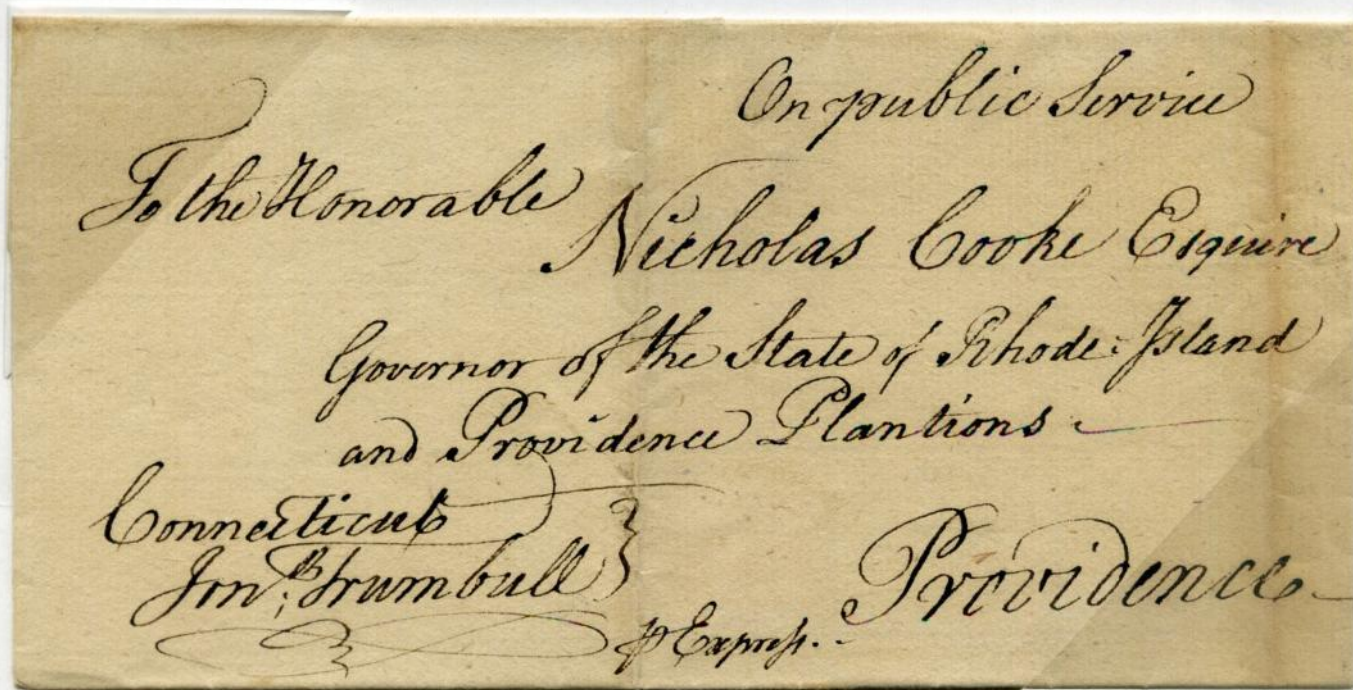 On public Service
To the Honorable
Nicholas Cooke Esquire
Governor of the State of Rhode-Island
and Providence Plantions
Connecticut
Jonth Trumbull
Providence
p Express.